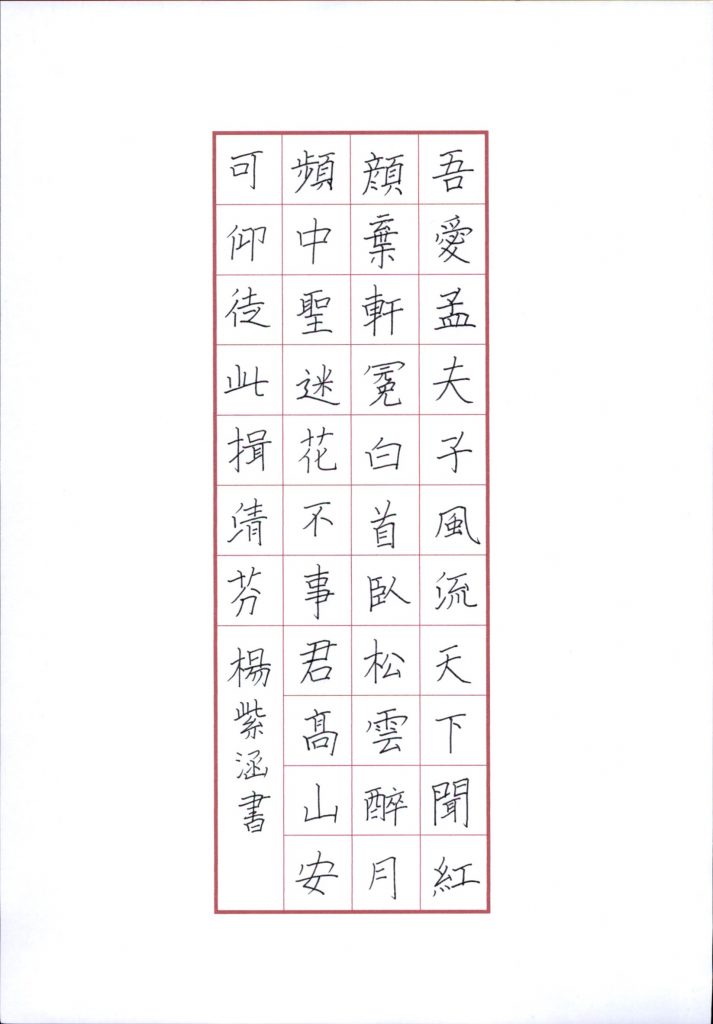 吾愛孟夫子風流天下聞紅
顔棄軒冕白首臥松雲醉月
頻中聖迷花不事君髙山安
可仰徒此揖清芬
楊紫涵書